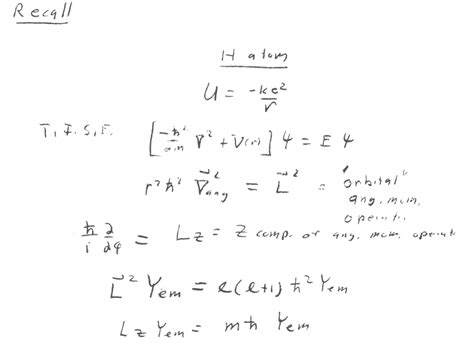 Recall
H atom
U = -ke²/r
T.I.S.E. [-ħ²/2m ∇² + V(r)] Ψ = E Ψ
r² ħ² ∇⃗²ang = L⃗² = "orbital"
ang. mom.
operat.
ħ/i ∂/∂φ = Lz = z comp. of ang. mom. operat.
L⃗² Yem = e(e+1) ħ² Yem
Lz Yem = mħ Yem